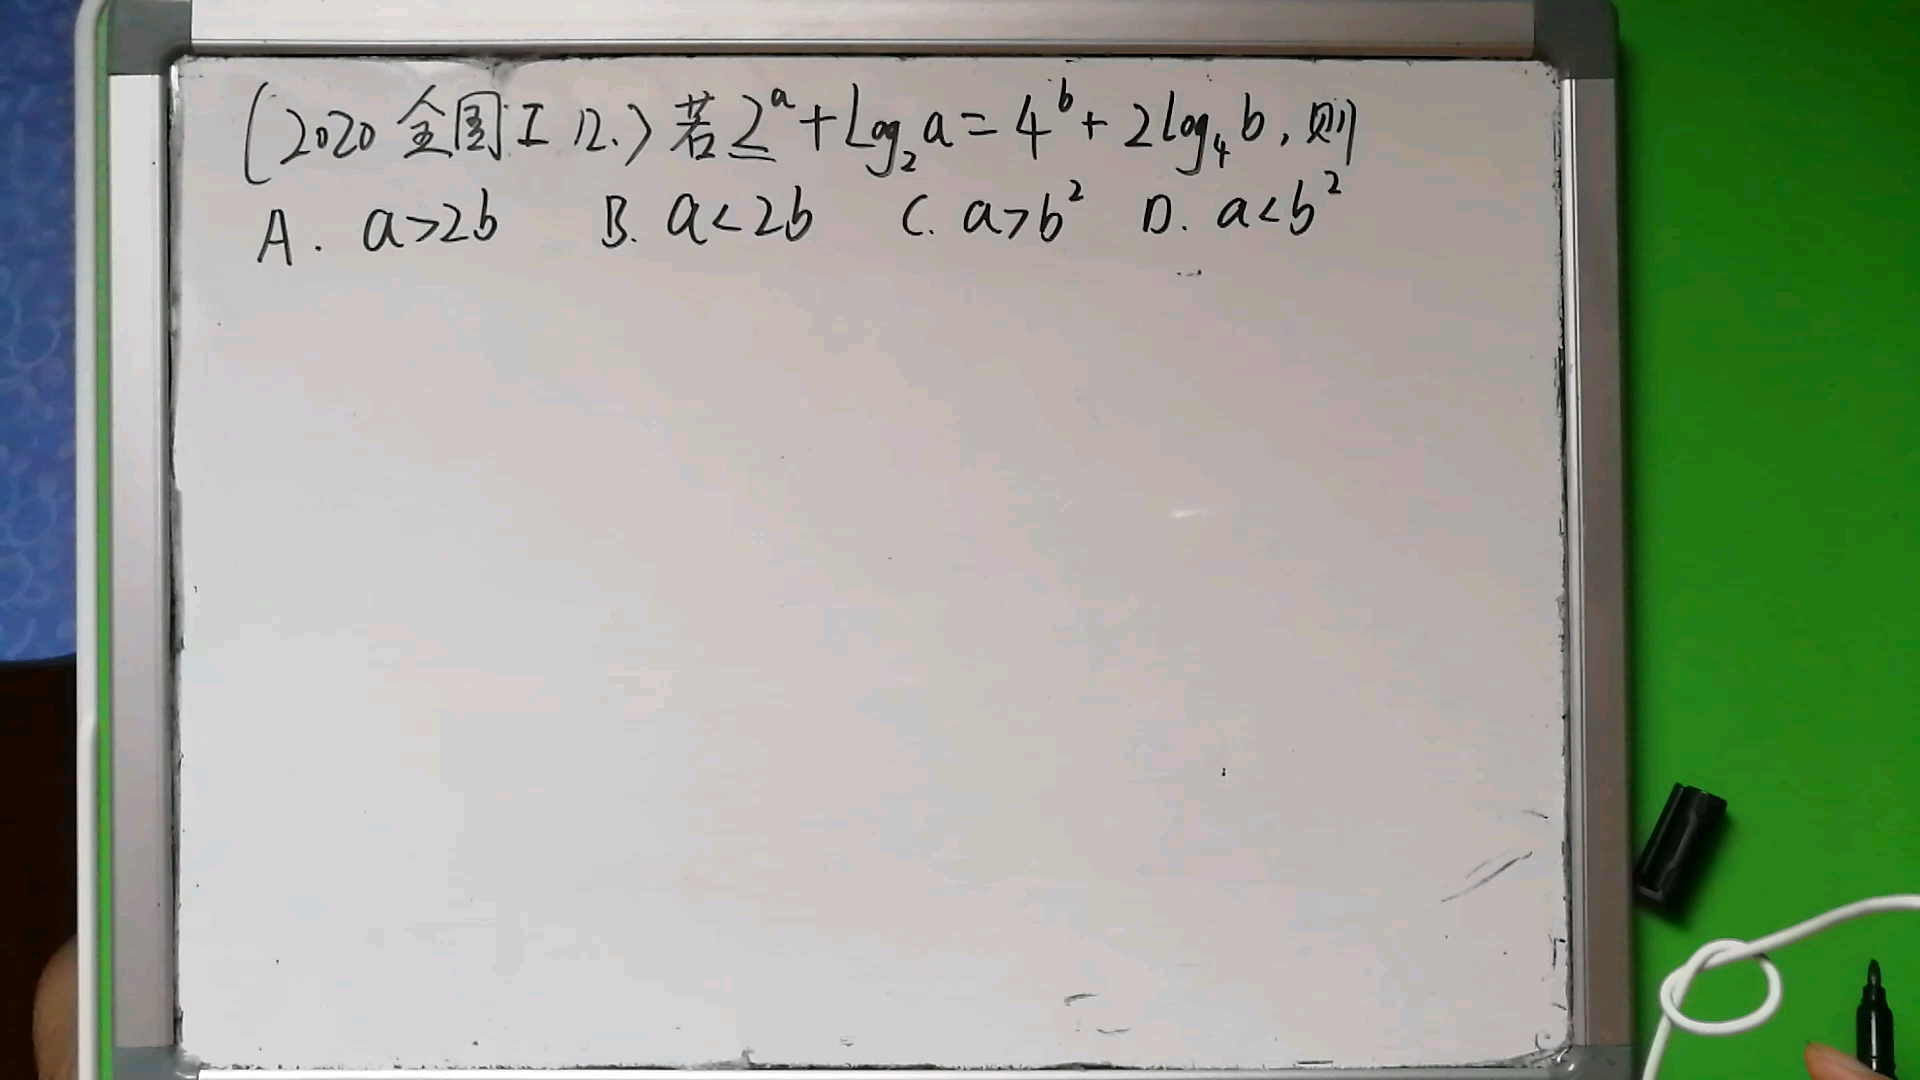 (2020全国I 12.)若2^a+log₂a=4^b+2log₄b,则
A. a>2b B. a<2b C. a>b² D. a<b²